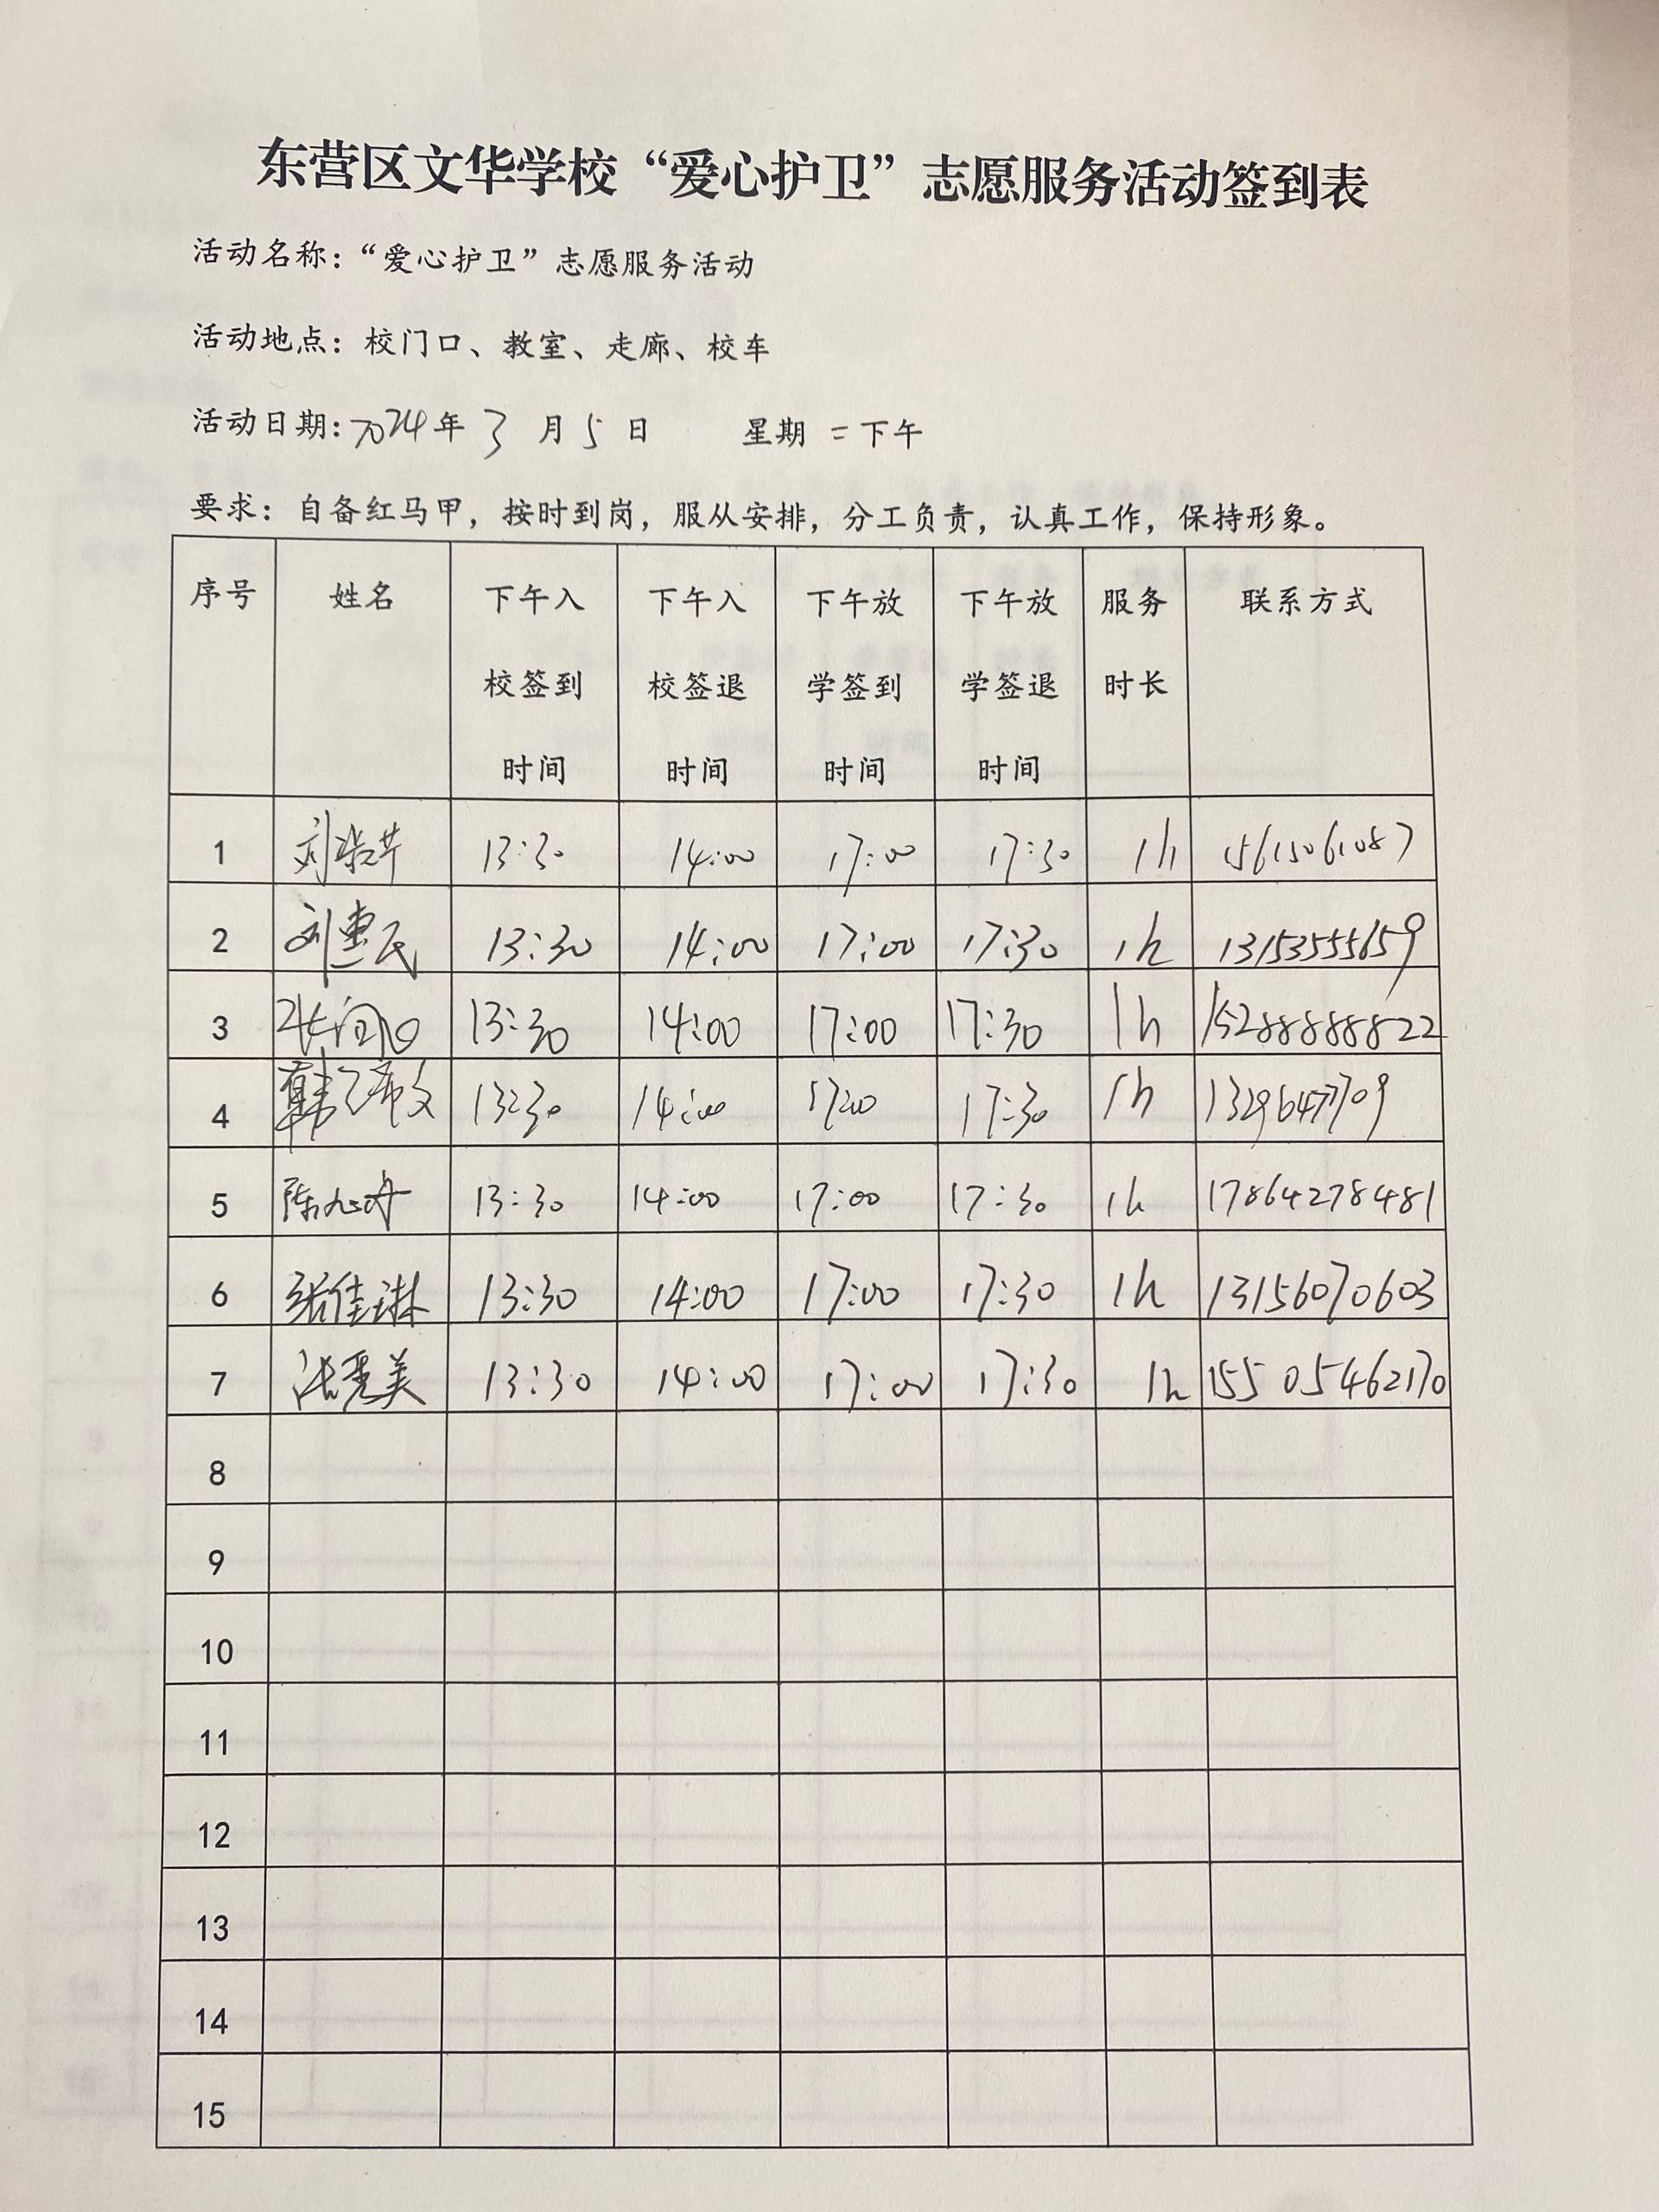 东营区文华学校“爱心护卫”志愿服务活动签到表
活动名称：“爱心护卫”志愿服务活动
活动地点：校门口、教室、走廊、校车
活动日期：2024年 3 月 5 日 星期 二 下午
要求：自备红马甲，按时到岗，服从安排，分工负责，认真工作，保持形象。
序号 姓名 下午入校签到时间 下午入校签退时间 下午放学签到时间 下午放学签退时间 服务时长 联系方式
1 13:30 14:00 17:00 17:30 1h 15615061087
2 刘惠民 13:30 14:00 17:00 17:30 1h 13153555659
3 13:30 14:00 17:00 17:30 1h 15288888822
4 13:30 14:00 17:00 17:30 1h 13296477709
5 13:30 14:00 17:00 17:30 1h 17864278481
6 张佳琳 13:30 14:00 17:00 17:30 1h 13156070603
7 张秀美 13:30 14:00 17:00 17:30 1h 15505462170
8
9
10
11
12
13
14
15